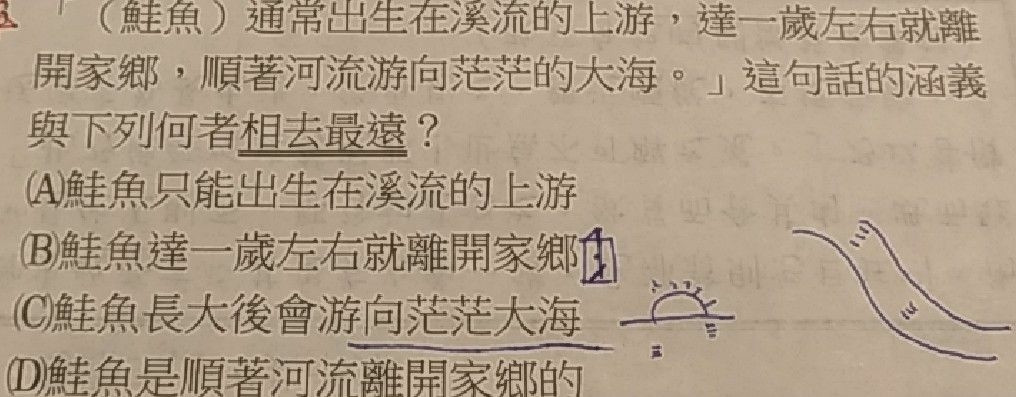 「（鮭魚）通常出生在溪流的上游，達一歲左右就離
開家鄉，順著河流游向茫茫的大海。」這句話的涵義
與下列何者相去最遠？
(A)鮭魚只能出生在溪流的上游
(B)鮭魚達一歲左右就離開家鄉
(C)鮭魚長大後會游向茫茫大海
(D)鮭魚是順著河流離開家鄉的